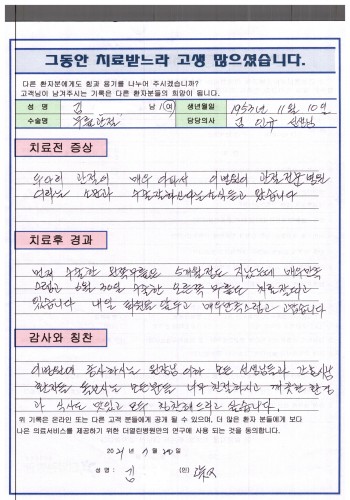 그동안 치료받느라 고생 많으셨습니다.
다른 환자분에게도 힘과 용기를 나누어 주시겠습니까?
고객님이 남겨주시는 기록은 다른 환자분들의 희망이 됩니다.
성 명 김 남 / 여 생년월일 1953년 11월 10일
수술명 무릎관절 담당의사 김 선생님
치료전 증상
관절이 매우 아파서 이병원이 관절전문병원
이라는 소문과 수술잘하신다는 소식듣고 왔습니다
치료후 경과
먼저 수술한 왼쪽무릎은 5개월정도 지났는데 매우만족
스럽고 6월 30일 수술한 오른쪽 무릎도 치료잘되고
있습니다 내일 퇴원을 앞두고 매우만족스럽고 고맙습니다
감사와 칭찬
이병원에 원장님 이하 모든 선생님들과 간호사님
환자를 모든분들 너무 친절하시고 깨끗한 환경
과 식사도 맛있고 모두 칭찬해드리고 싶습니다.
위 기록은 온라인 또는 다른 고객 분들에게 공개 될 수 있으며, 더 많은 환자 분들에게 보다
나은 의료서비스를 제공하기 위한 더열린병원만의 연구에 사용 되는 것을 동의합니다.
2021년 7월 20일
성 명 : 김 (인)